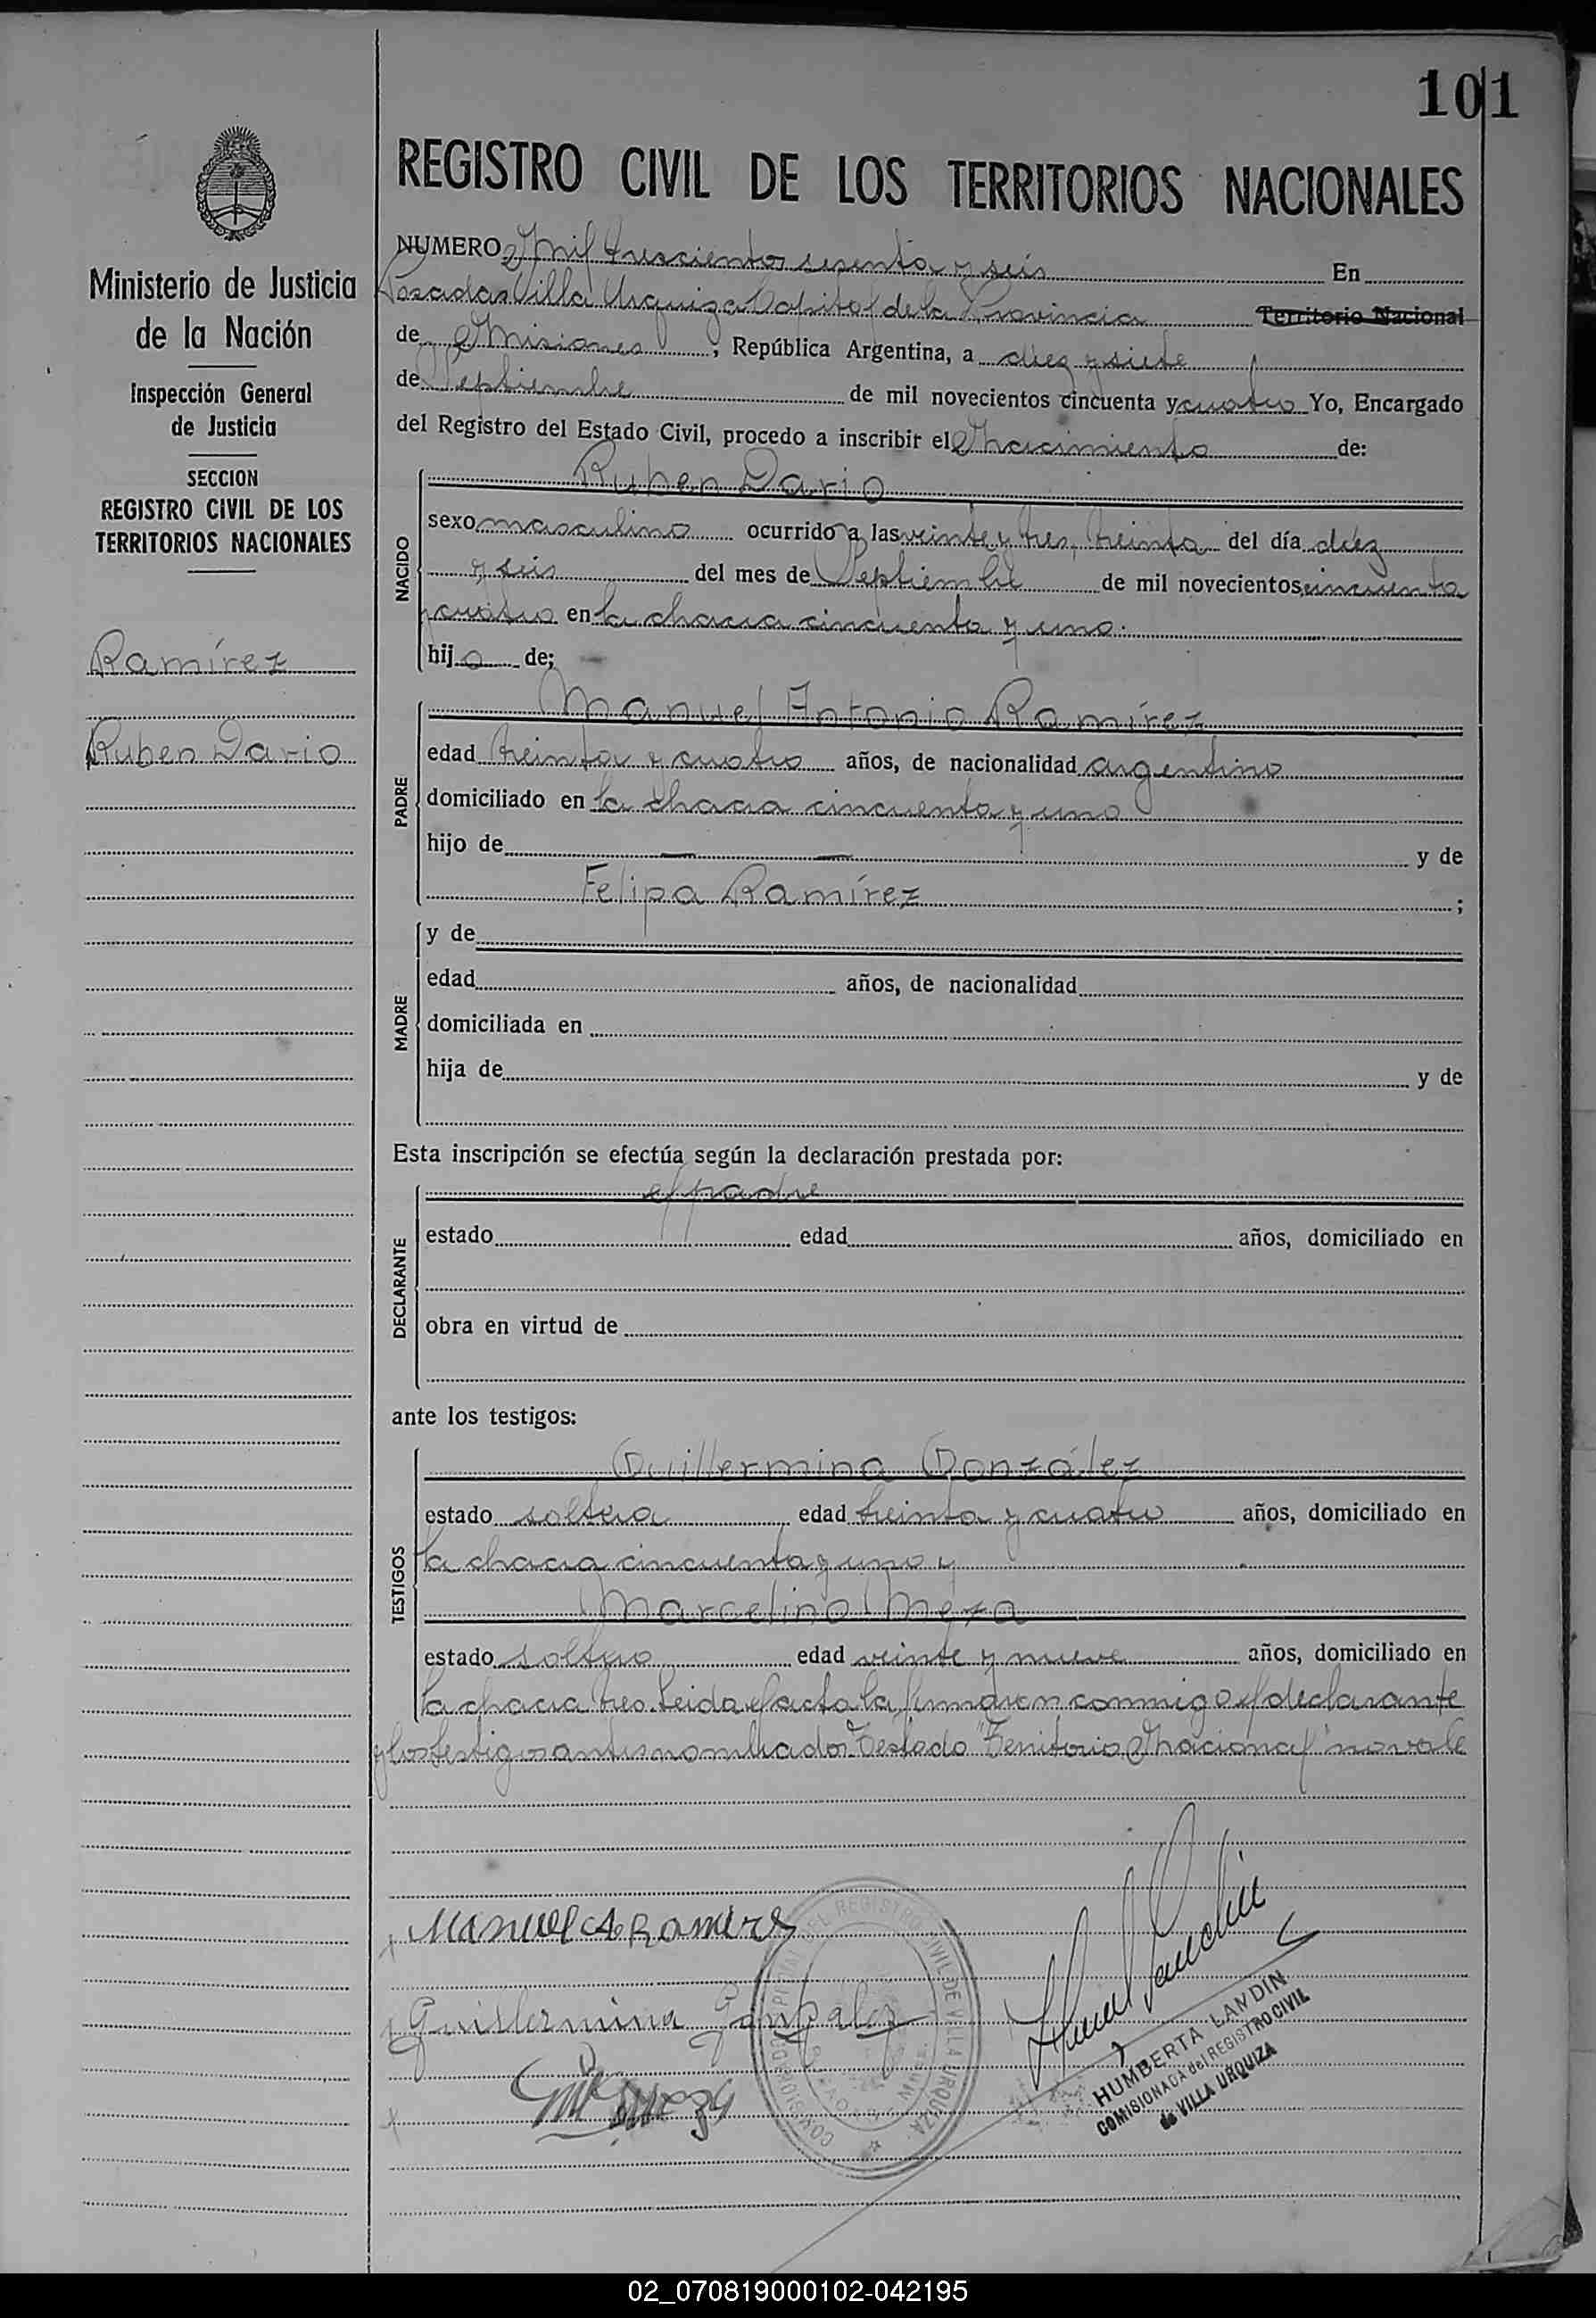 101
REGISTRO CIVIL DE LOS TERRITORIOS NACIONALES
Ministerio de Justicia
de la Nación
Inspección General
de Justicia
SECCION
REGISTRO CIVIL DE LOS
TERRITORIOS NACIONALES
Ramírez
Ruben Dario
NUMERO Mil trescientos sesenta y seis En
Posadas Villa Urquiza Capital de la Provincia Territorio Nacional
de Misiones, República Argentina, a diez y siete
de Septiembre de mil novecientos cincuenta y cuatro Yo, Encargado
del Registro del Estado Civil, procedo a inscribir el Nacimiento de:
NACIDO
Ruben Dario
sexo masculino ocurrido a las veinte y tres, treinta del día diez
y seis del mes de Septiembre de mil novecientos cincuenta
y cuatro en la chacra cincuenta y uno.
hijo de;
PADRE
Manuel Antonio Ramírez
edad treinta y cuatro años, de nacionalidad argentino
domiciliado en la chacra cincuenta y uno
hijo de — — y de
Felipa Ramírez ;
MADRE
y de
edad años, de nacionalidad
domiciliada en
hija de y de
Esta inscripción se efectúa según la declaración prestada por:
DECLARANTE
el padre
estado edad años, domiciliado en
obra en virtud de
ante los testigos:
TESTIGOS
Guillermina González
estado soltera edad treinta y cuatro años, domiciliado en
la chacra cincuenta y uno y
Marcelino Meza
estado soltero edad veinte y nueve años, domiciliado en
la chacra tres. Leida el acta la firmaron conmigo el declarante
y los testigos antes nombrados. Testado "Territorio Nacional" no vale
Manuel A Ramires
Guillermina Gonzalez
HUMBERTA LANDIN
COMISIONADA del REGISTRO CIVIL
de VILLA URQUIZA
02_070819000102-042195